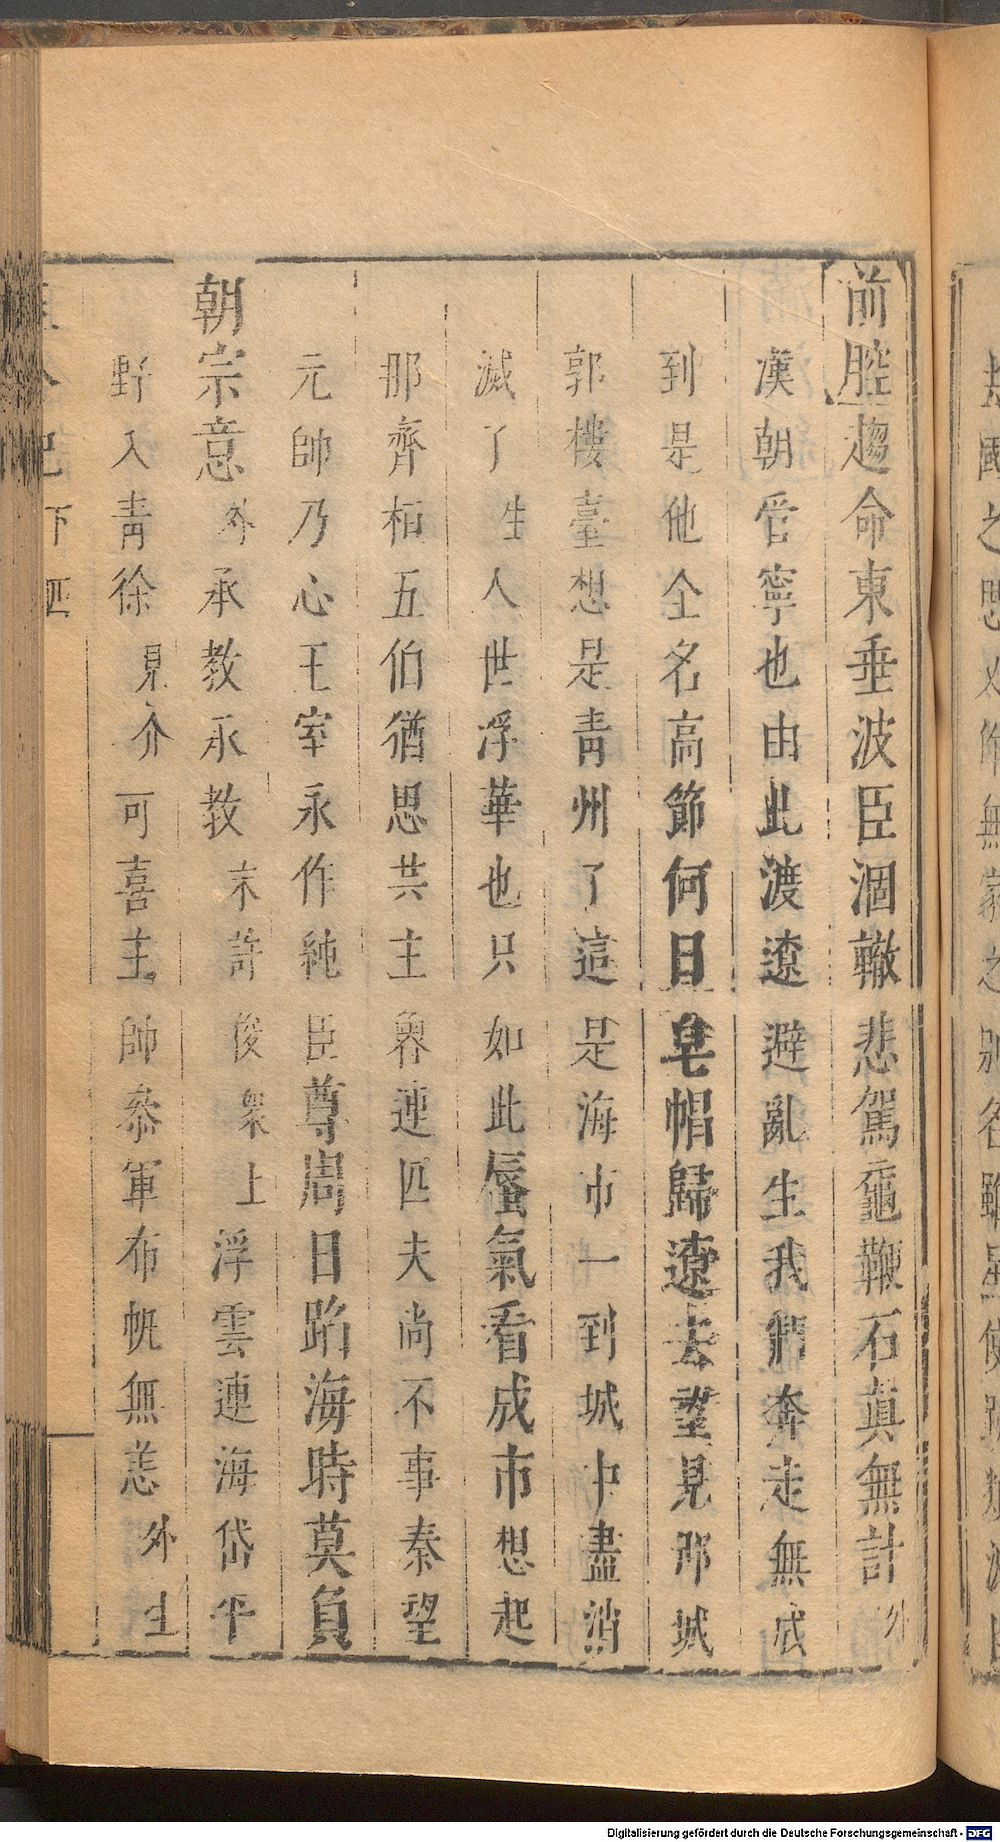 前腔趨命東垂波臣涸轍悲駕黿鞭石真無計外
漢朝管寧也由此渡遼避亂生我們奔走無成
到是他全名高節何日皂帽歸遼去望見那城
郭樓臺想是青州了這是海市一到城中盡消
滅了生人世浮華也只如此蜃氣看成市想起
那齊桓五伯猶思共主魯連匹夫尚不事秦望
元帥乃心王室永作純臣尊周日蹈海時莫負
朝宗意外承教承教末許俊衆上浮雲連海岱平
野入青徐見介可喜主帥叅軍布帆無恙外生
下 四
Digitalisierung gefördert durch die Deutsche Forschungsgemeinschaft - DFG